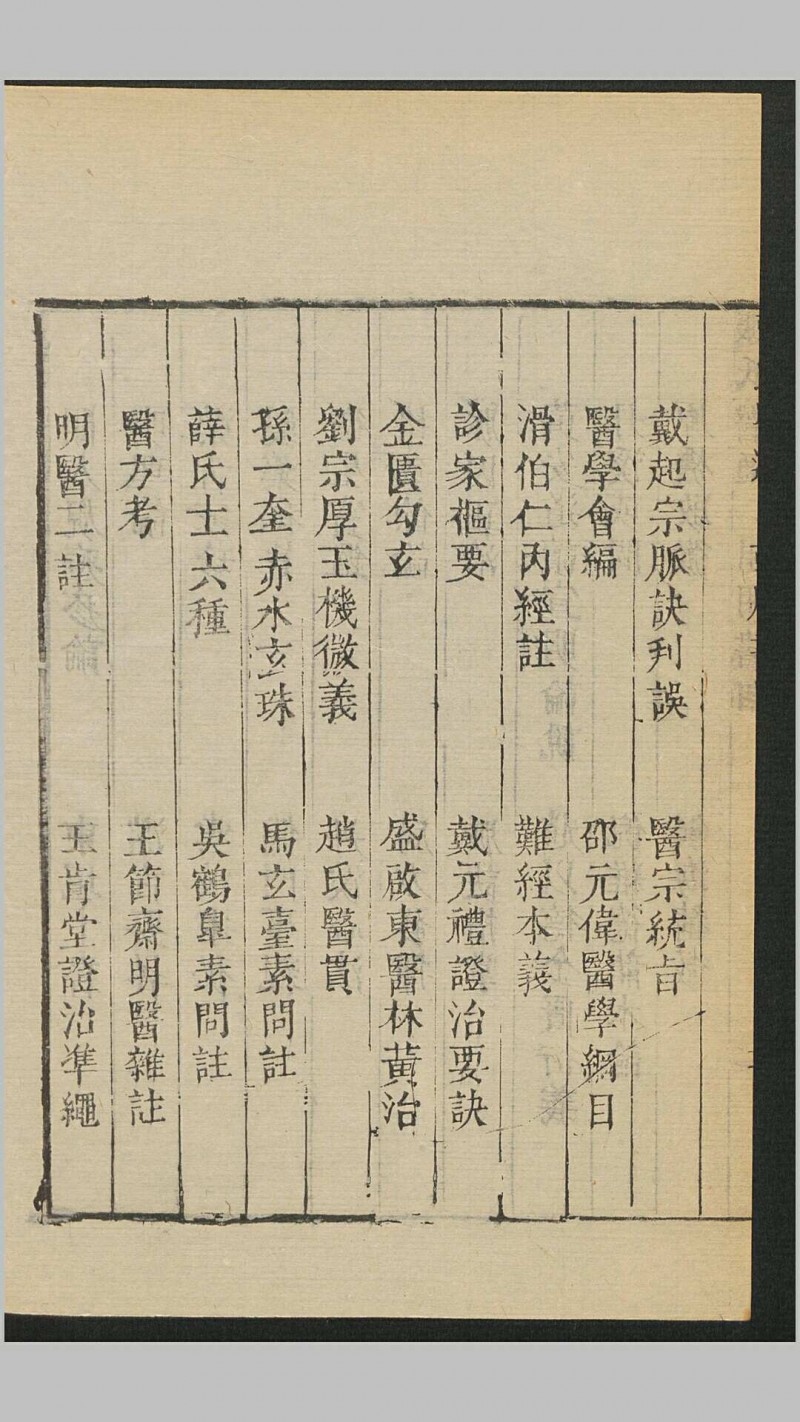 戴起宗脈訣刋誤　醫宗統旨
醫學會編　邵元偉醫學綱目
滑伯仁內經註　難經本義
診家樞要　戴元禮證治要訣
金匱勾玄　盛啟東醫林黃治
劉宗厚玉機微義　趙氏醫貫
孫一奎赤水玄珠　馬玄臺素問註
薛氏士六種　吳鶴臯素問註
醫方考　王節齋明醫雜註
明醫二註　王肯堂證治準繩